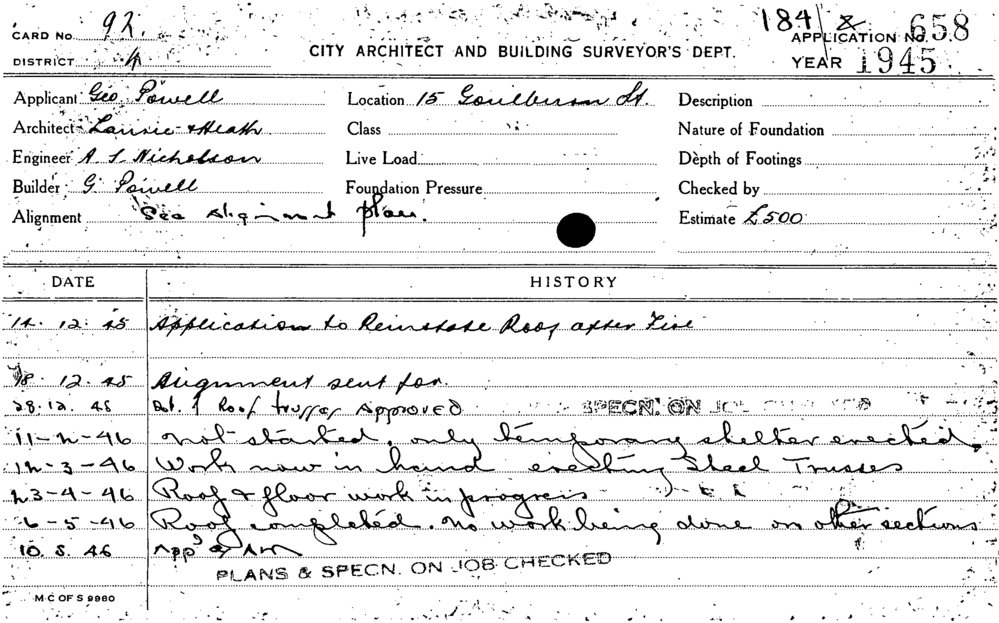 CARD No. 92.
184/
APPLICATION No. 658
DISTRICT 4
CITY ARCHITECT AND BUILDING SURVEYOR'S DEPT.
YEAR 1945
Applicant Geo. Powell Location 15 Goulburn St. Description
Architect Laurie & Heath Class Nature of Foundation
Engineer A S Nicholson Live Load Depth of Footings
Builder G. Powell Foundation Pressure Checked by
Alignment See alignment plan. Estimate £500
DATE HISTORY
14. 12. 45 Application to Reinstate Roof after Fire
18. 12. 45 Alignment sent for.
28.12.45 Roof trusses Approved SPECN. ON JOB
11-2-46 not started, only temporary shelter erected.
12-3-46 Work now in hand erecting Steel Trusses
23-4-46 Roof & floor work in progress
6-5-46 Roof completed. no work being done on other sections
10. 5. 46 App'd
PLANS & SPECN. ON JOB CHECKED
M-C OF S 9980